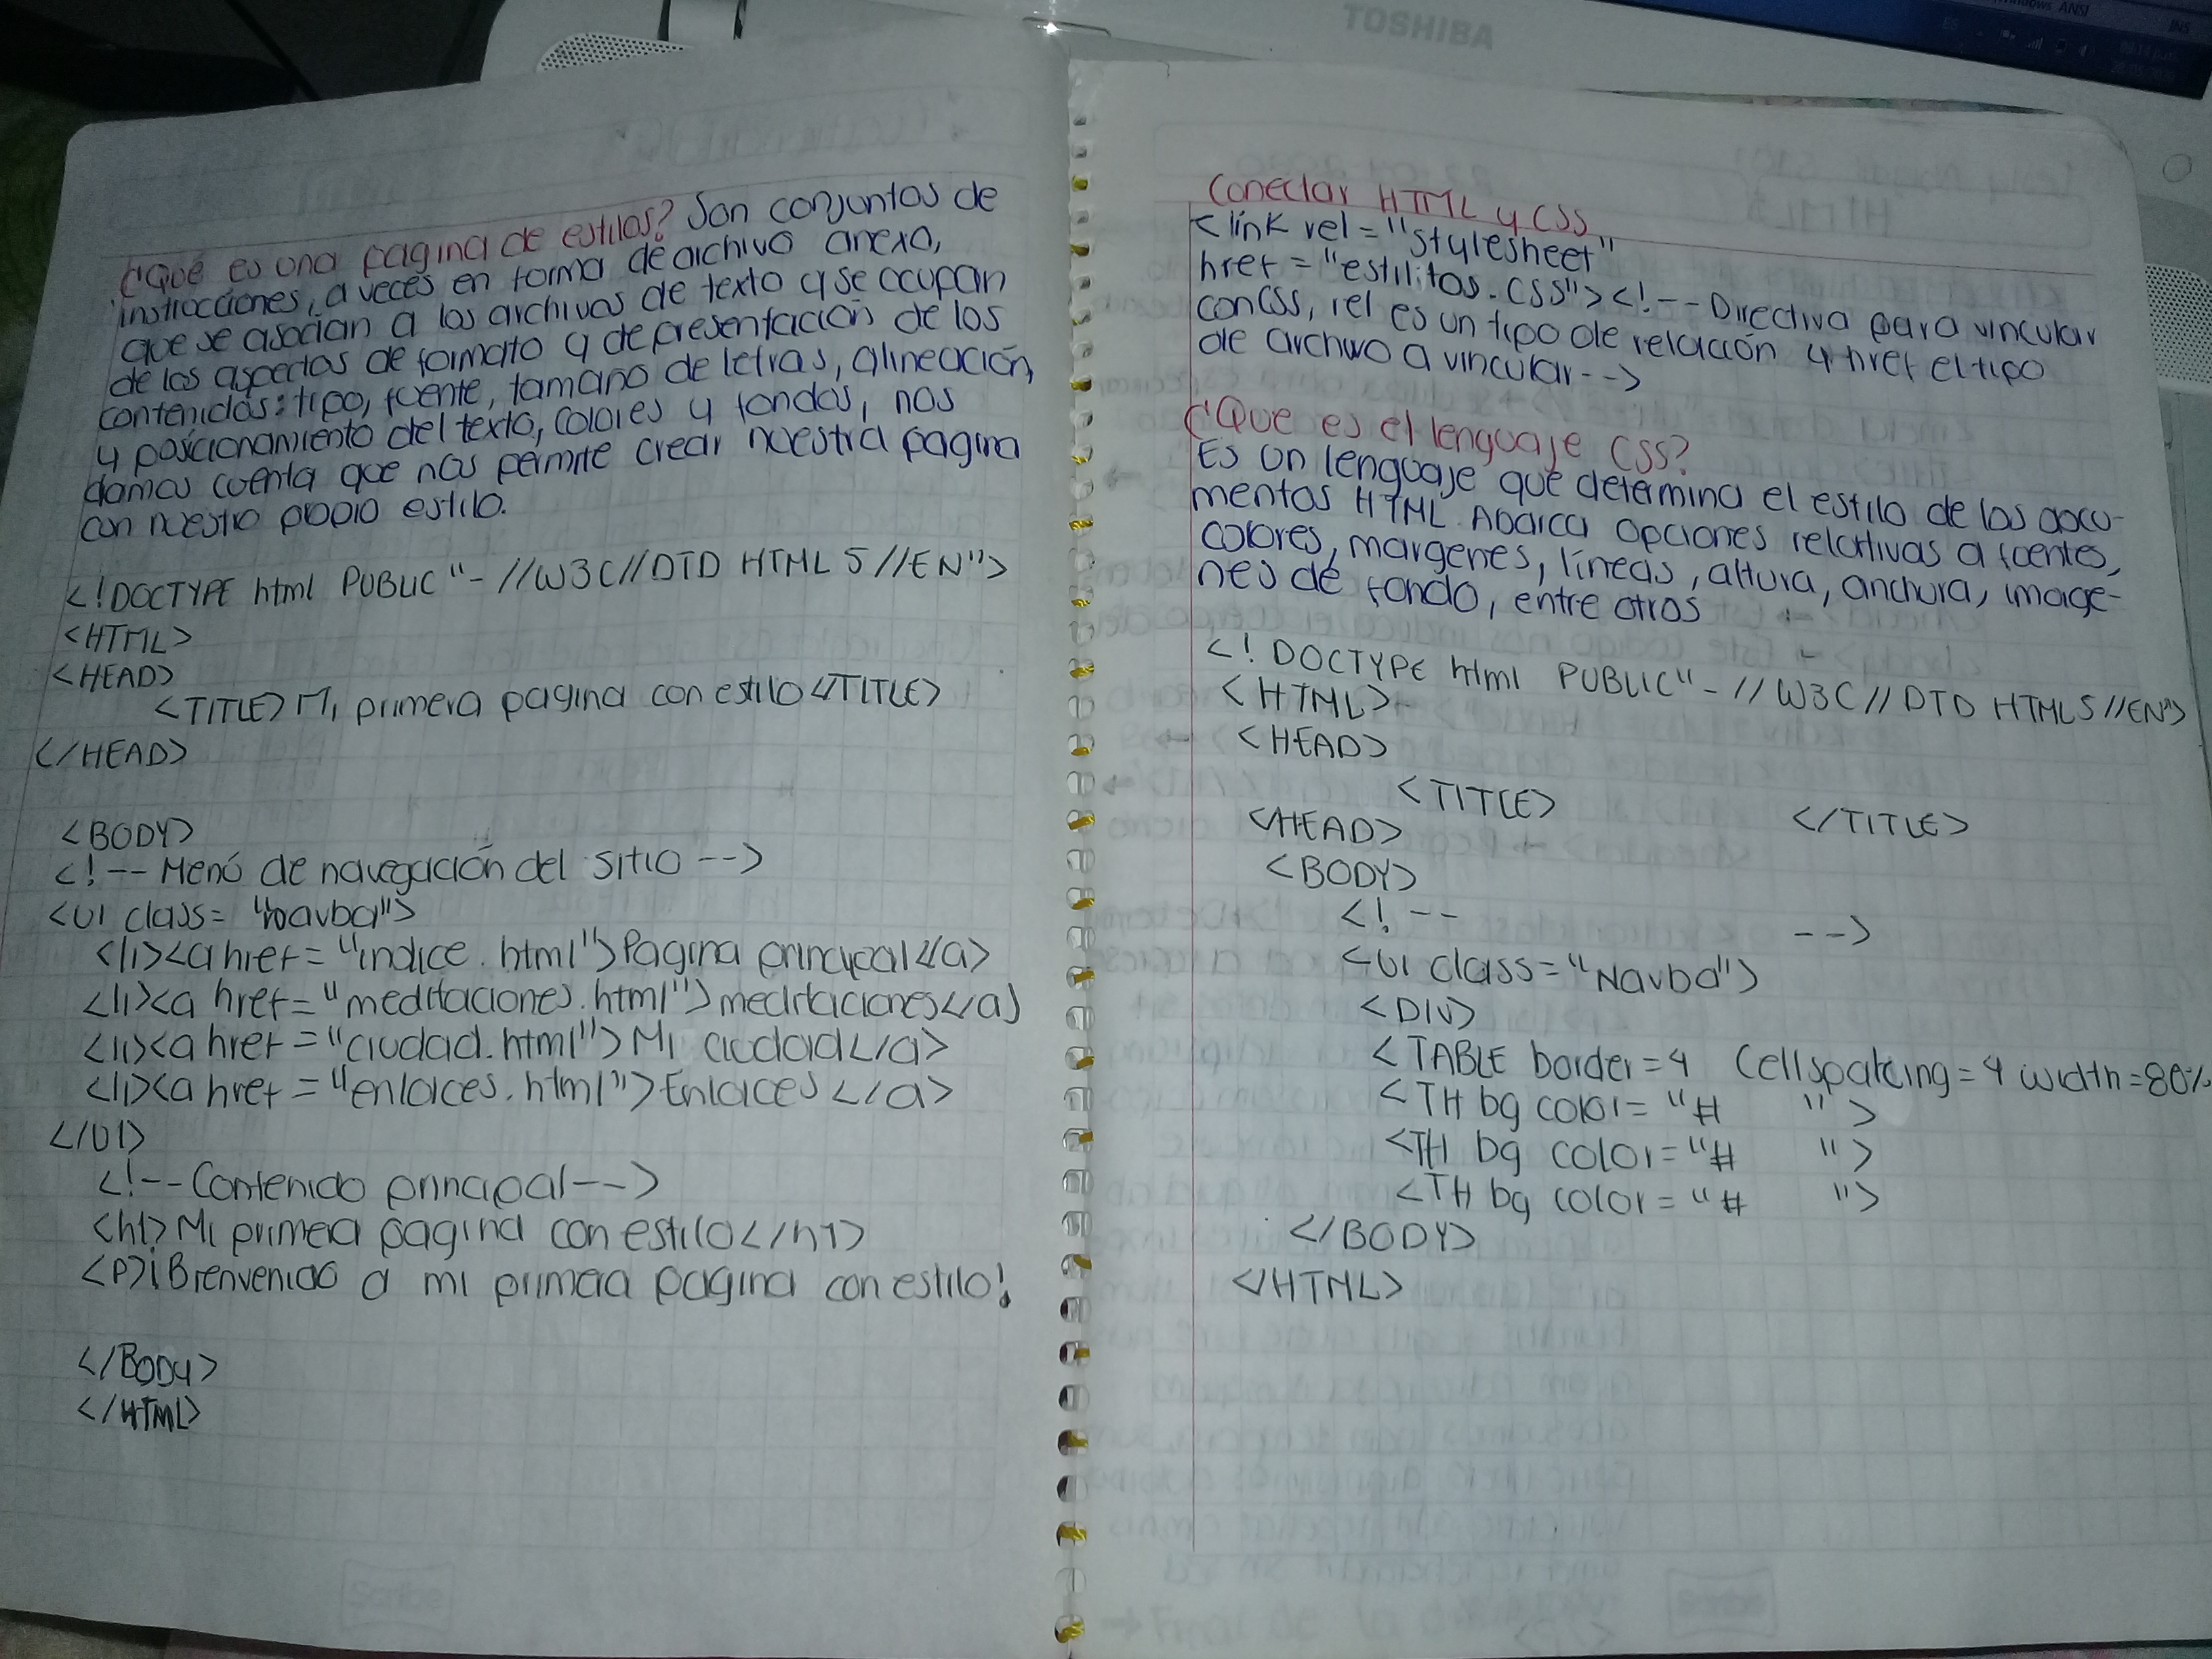 TOSHIBA
Windows ANSI
INS
¿Qué es una pagina de estilos? Son conjuntos de
instrucciones, a veces en forma de archivo anexo,
que se asocian a los archivos de texto y se ocupan
de los aspectos de formato y de presentación de los
contenidos: tipo, fuente, tamaño de letras, alineación,
y posicionamiento del texto, colores y fondos, nos
damos cuenta que nos permite crear nuestra pagina
con nuestro propio estilo.
<!DOCTYPE html PUBLIC "- //W3C//DTD HTML 5 //EN">
<HTML>
<HEAD>
<TITLE> Mi primera pagina con estilo </TITLE>
</HEAD>
<BODY>
<!-- Menú de navegación del sitio -->
<ul class= "navba">
<li><a href= "indice.html">Pagina principal</a>
<li><a href= "meditaciones.html">meditaciones</a>
<li><a href= "ciudad.html">Mi ciudad</a>
<li><a href= "enlaces.html">Enlaces</a>
</ul>
<!--Contenido principal-->
<h1>Mi primera pagina con estilo</h1>
<p>¡Bienvenido a mi primera pagina con estilo!
</BODY>
</HTML>
Conectar HTML y CSS
<link rel= "stylesheet"
href= "estilitos.css"><!-- Directiva para vincular
con CSS, rel es un tipo de relación y href el tipo
de archivo a vincular-->
¿Que es el lenguaje CSS?
Es un lenguaje que determina el estilo de los docu-
mentos HTML. Abarca opciones relativas a fuentes,
colores, margenes, líneas, altura, anchura, image-
nes de fondo, entre otros
<! DOCTYPE html PUBLIC"- //W3C//DTD HTML5 //EN">
<HTML>
<HEAD>
<TITLE> </TITLE>
</HEAD>
<BODY>
<!-- -->
<ul class= "Navba">
<DIV>
<TABLE border=4 Cellspatcing=4 width=80%
<TH bg color= "# ">
<TH bg color= "# ">
<TH bg color= "# ">
</BODY>
</HTML>
Scribe
Scribe